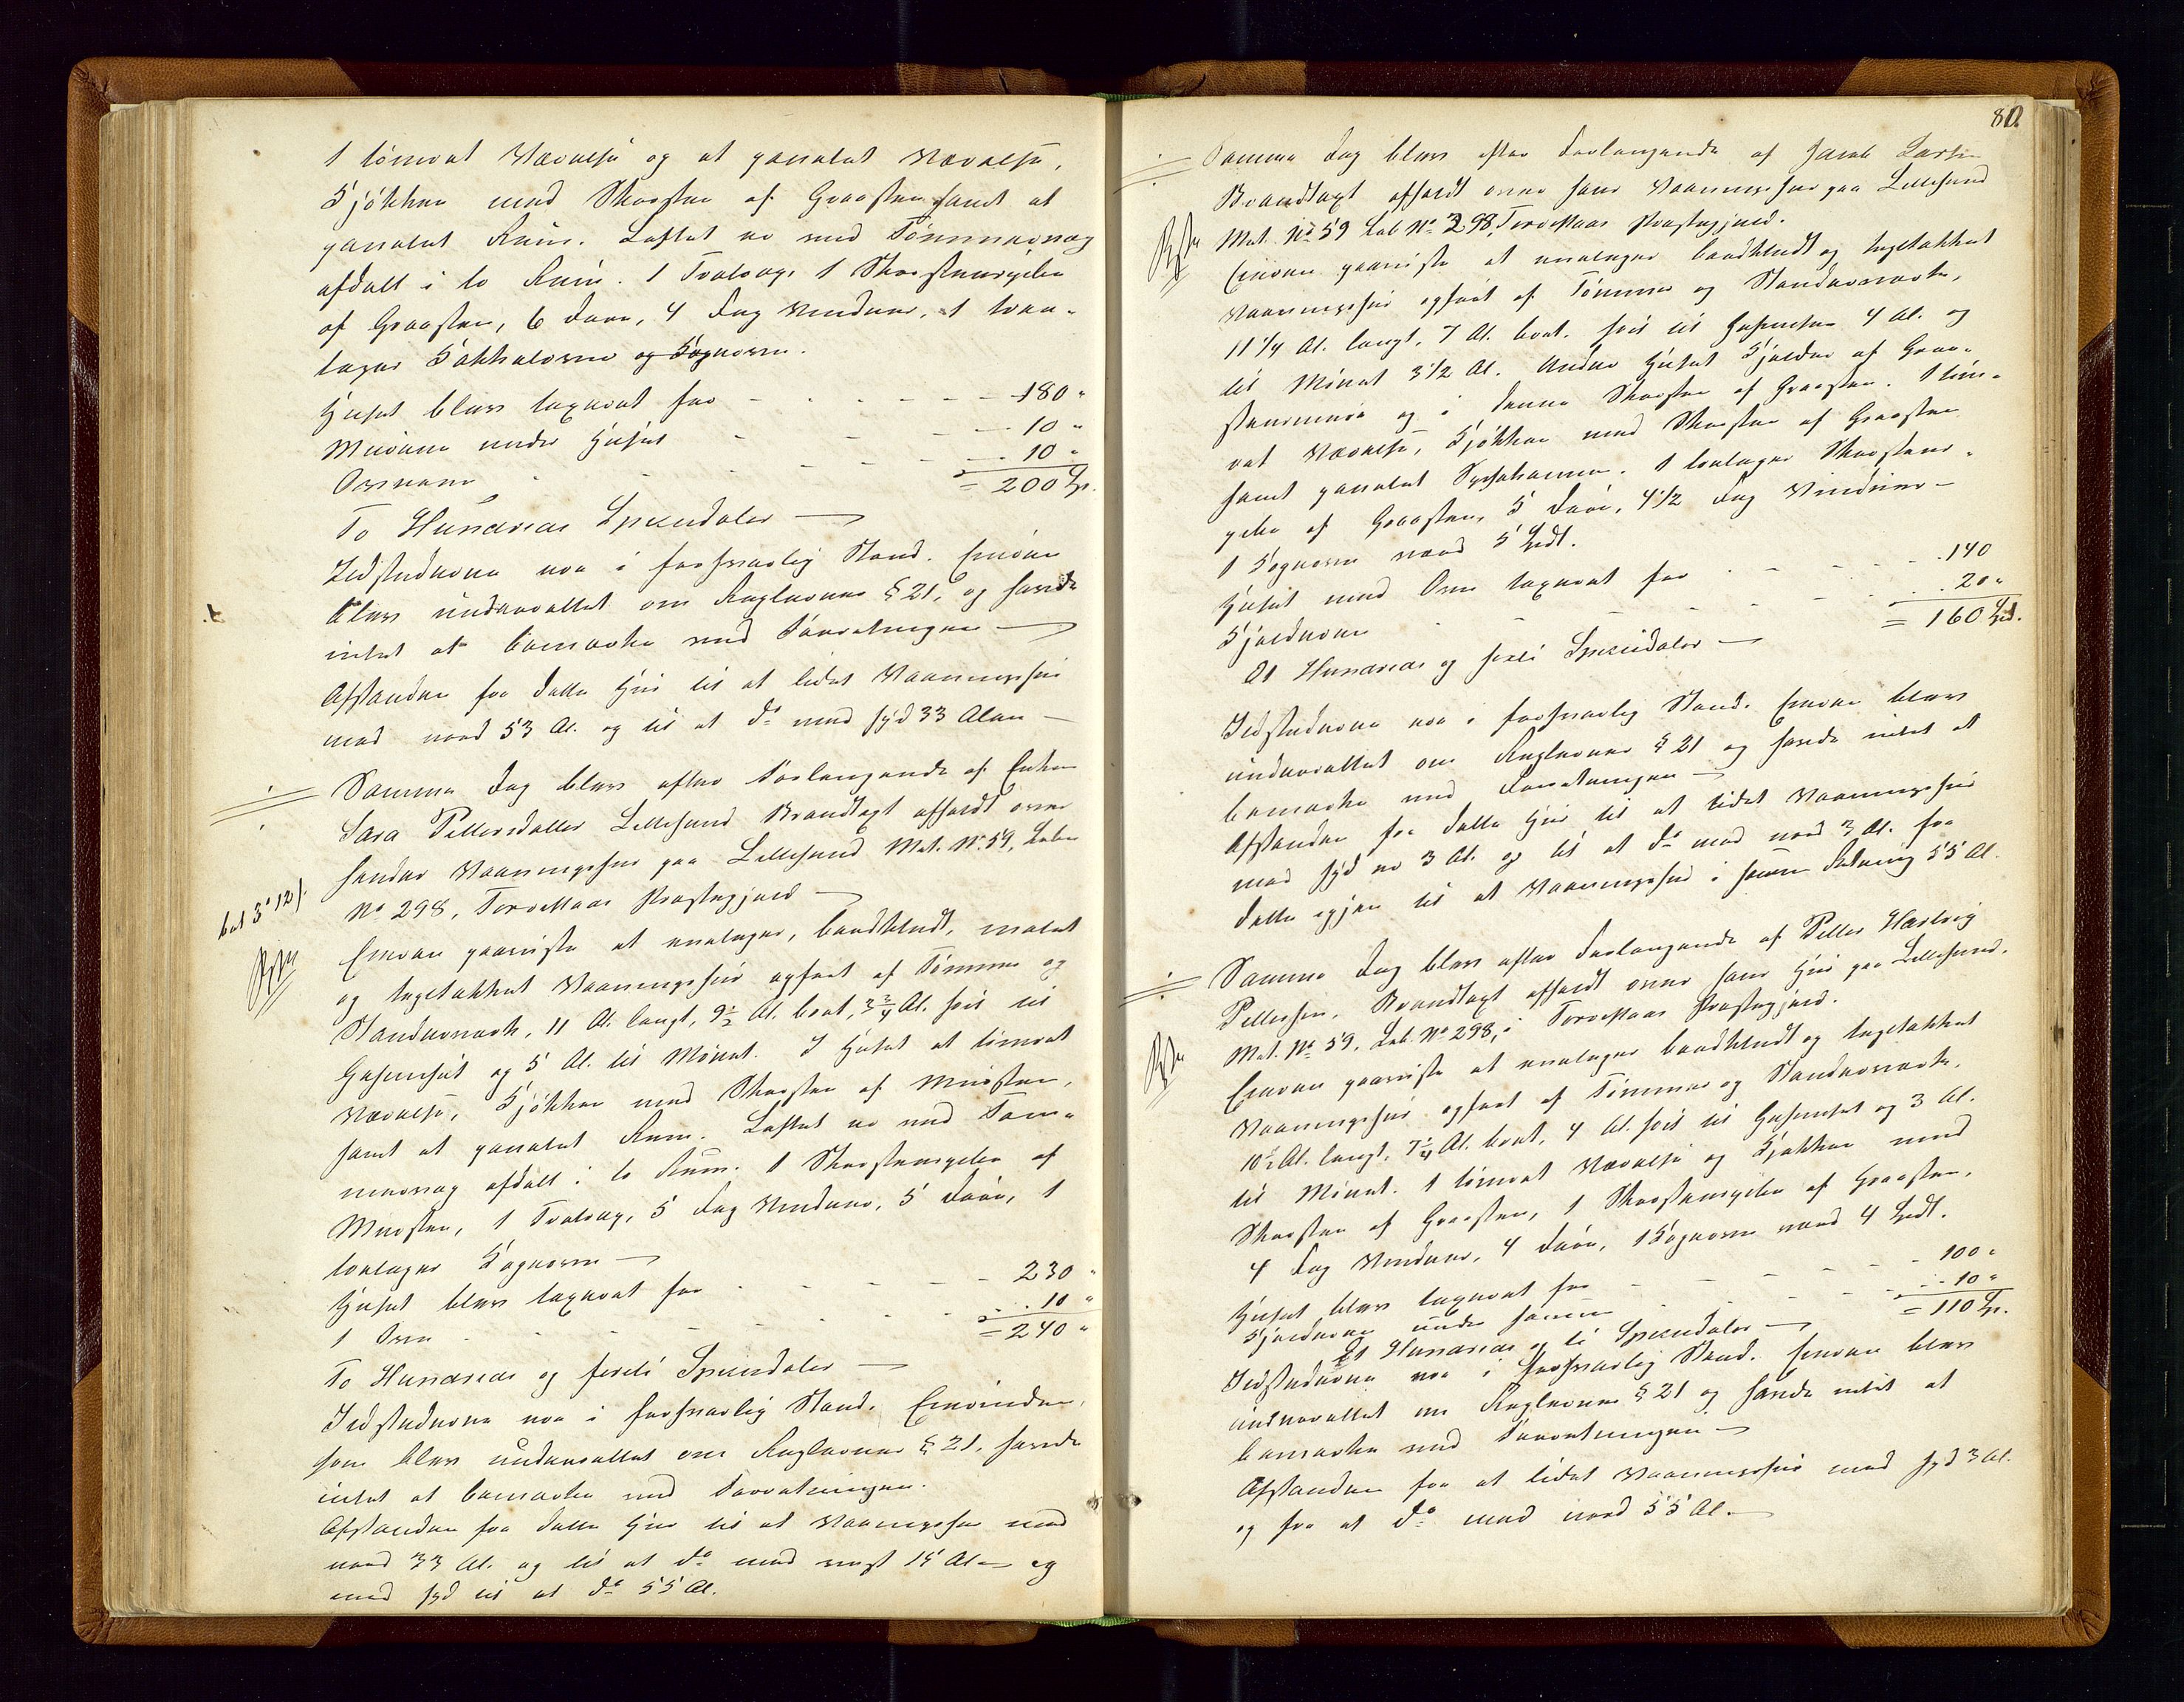 1 tømret Værelse og et panelet Værelse,
Kjøkken med Skorsten af Graasten samt et
panelet Rum. Loftet er med Tømmervæg
afdelt i to Rum. 1 Tvalvæg 1 Skorstenspibe
af Graasten, 6 Døre, 4 Fag Vinduer, 1 toe-
tages Kakkelovn og Bagerovn.
Huset blev taxeret for 180 "
Murene under Huset 10 "
Ovnene 10 "
= 200 Sp.
To Hundrede Speciedaler
Ildstederne var i forsvarlig Stand. Eieren
blev underrettet om Reglernes § 21, og havde
intet at bemærke ved Forretningen
Afstanden fra dette Huus til et lidet Vaaningshus
mod nord 53 Al. og til et do mod syd 33 Alen
Samme Dag blev efter Forlangende af Enken
Sara Pettersdatter Lillesund Brandtaxt afholdt over
hendes Vaaningshus paa Lillesund Mat. No 59, Løbe
No 298, Torvestad Præstegjeld
bet 3 12/
Eieren paaviste et enetages, bordklædt, malet
og tegltækket Vaaningshus opført af Tømmer og
Standerværk, 11 Al. langt, 9½ Al. bredt, 3¾ Al. høit til
Gesimset og 5 Al. til Mønet. I Huset et tømret
Værelse, Kjøkken med Skorsten af Mursten,
samt et panelet Rum. Loftet er med Tøm-
mervæg afdelt i to Rum. 1 Skorstenspibe af
Mursten, 1 Tvalvæg, 5 Fag Vinduer, 5 Døre, 1
toetages Kogeovn
Huset blev taxeret for 230 "
1 Ovn 10 "
= 240 "
To Hundrede og førti Speciedaler
Ildstederne var i forsvarlig Stand. Eierinden,
som blev underrettet om Reglernes § 21, havde
intet at bemærke ved Forretningen.
Afstanden fra dette Huus til et Vaaningshus mod
nord 33 Al. og til et do mod vest 15 Al. og
mod syd til et do 55 Al.
80.
Samme Dag blev efter Forlangende af Jacob Larsen
Brandtaxt afholdt over hans Vaaningshus paa Lillesund
Mat. No 59 Løb No 298, Torvestad Præstegjeld.
Eieren paaviste et enetages bordklædt og tegltækket
Vaaningshus opført af Tømmer og Standerværk,
11 1/4 Al. langt, 7 Al. bredt, høit til Gesimsen 4 Al. og
til Mønet 3 1/2 Al. Under Huset Kjelder af Graa-
stensmure og i denne Skorsten af Graasten. 1 tøm-
ret Værelse, Kjøkken med Skorsten af Graasten
samt panelet Spisekammer. 1 toetages Skorstens-
pibe af Graasten, 5 Døre, 4 1/2 Fag Vinduer
1 Kogeovn værd 5 Spdl.
Huset med Ovn taxeret for 140
Kjelderen 20 "
= 160 Spd.
Et Hundrede og sexti Speciedaler
Ildstederne var i forsvarlig Stand. Eieren blev
underrettet om Reglernes § 21 og havde intet at
bemærke ved Forretningen
Afstanden fra dette Huus til et lidet Vaaningshus
mod syd er 3 Al. og til et do mod nord 3 Al. fra
dette igjen til et Vaaningshus i samme Retning 55 Al.
Samme Dag blev efter Forlangende af Petter Hartvig
Pettersen, Brandtaxt afholdt over hans Huus paa Lillesund,
Mat. No 59, Løb. No 298, i Torvestad Præstegjeld.
Eieren paaviste et enetages bordklædt og tegltækket
Vaaningshus opført af Tømmer og Standerværk.
10½ Al. langt, 7¼ Al. bredt, 4 Al. høit til Gesimset og 3 Al.
til Mønet. 1 tømret Værelse og Kjøkken med
Skorsten af Graasten, 1 Skorstenspibe af Graasten,
4 Fag Vinduer, 4 Døre, 1 Kogeovn værd 4 Spdl.
Huset blev taxeret for 100 "
Kjelderen under samme 10 "
= 110 Sp.
Et Hundrede og ti Speciedaler
Ildstederne var i forsvarlig Stand. Eieren blev
underrettet om Reglernes § 21 og havde intet at
bemærke ved Forretningen
Afstanden fra et lidet Vaaningshus mod syd 3 Al.
og fra et do mod nord 55 Al.